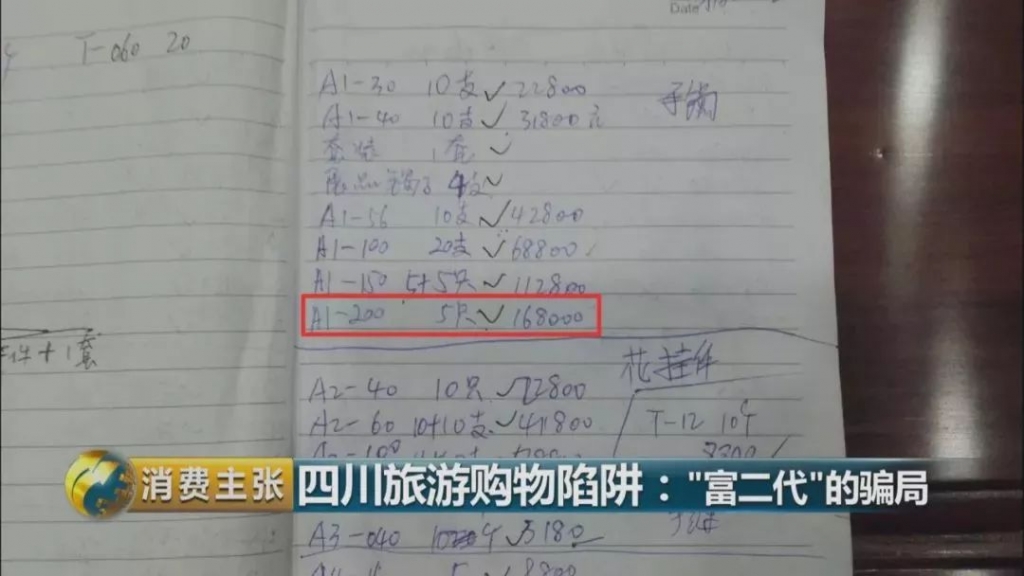 T-060 20
Date
A1-30 10支✓22800
手镯
A1-40 10支✓31800元
套装 1套 ✓
4支✓
A1-56 10支✓42800
A1-100 20支✓68800
A1-150 5+5只✓112800
A1-200 5只✓168000
件+1套
花挂件
A2-40 10只✓72800
A2-60 10+10支✓41800
T-12 10个
消费主张
四川旅游购物陷阱："富二代"的骗局
A3-040 ✓3180
8800